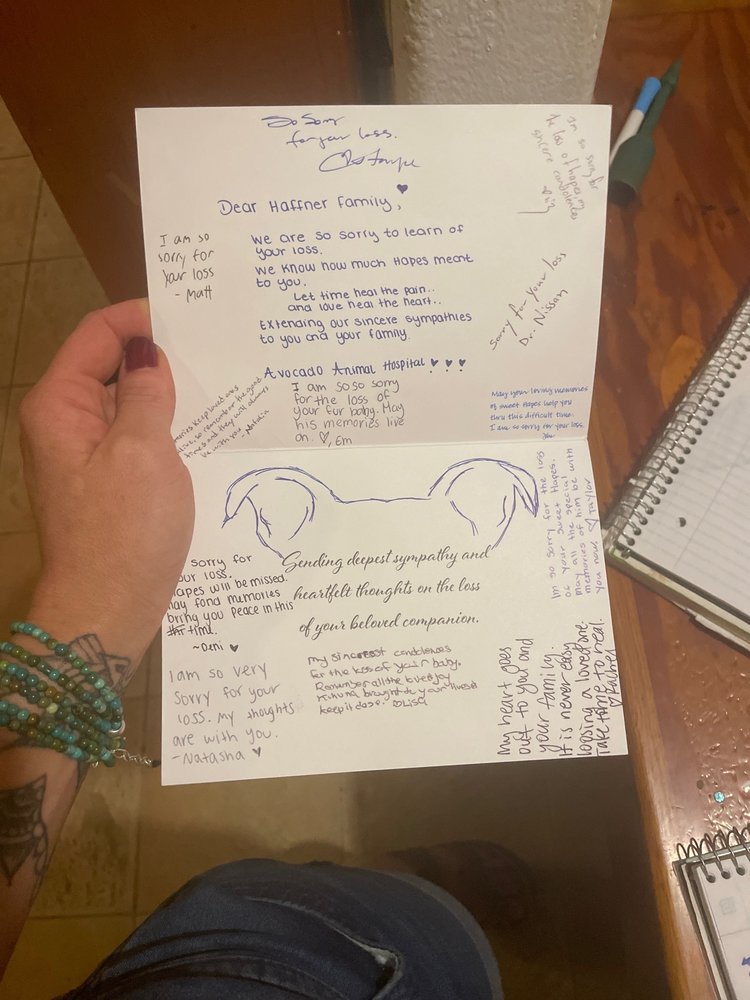 So Sorry
for your loss.
Dear Haffner Family,
We are so sorry to learn of
your loss.
We know how much Hapes meant
to you.
Let time heal the pain..
and love heal the heart..
Extending our sincere sympathies
to you and your family.
Avocado Animal Hospital
I am so
sorry for
your loss
- Matt
Sorry for your loss
Dr. Nissan
keep loved ones
so remember the good
times and they will always
be with you
I am so so sorry
for the loss of
your fur baby. May
his memories live
on. ♡, Em
May your loving memories
of sweet Hapes help you
thru this difficult time.
I am so sorry for your loss.
Im so sorry for the loss
of your sweet Hapes.
may all the special
memories of him be with
you now. ♡ Taylor
sorry for
your loss.
Hapes will be missed.
may fond memories
bring you peace in this
time.
~Deni ♥
Sending deepest sympathy and
heartfelt thoughts on the loss
of your beloved companion.
I am so very
sorry for your
loss. My thoughts
are with you.
-Natasha ♥
My sincerest condolences
for the loss of your baby.
Remember all the love & joy
brought to your lives &
keep it close. ♡Lisa
My heart goes
out to you and
your family.
It is never easy
loosing a loved one.
Take time to heal.
♡Rachel